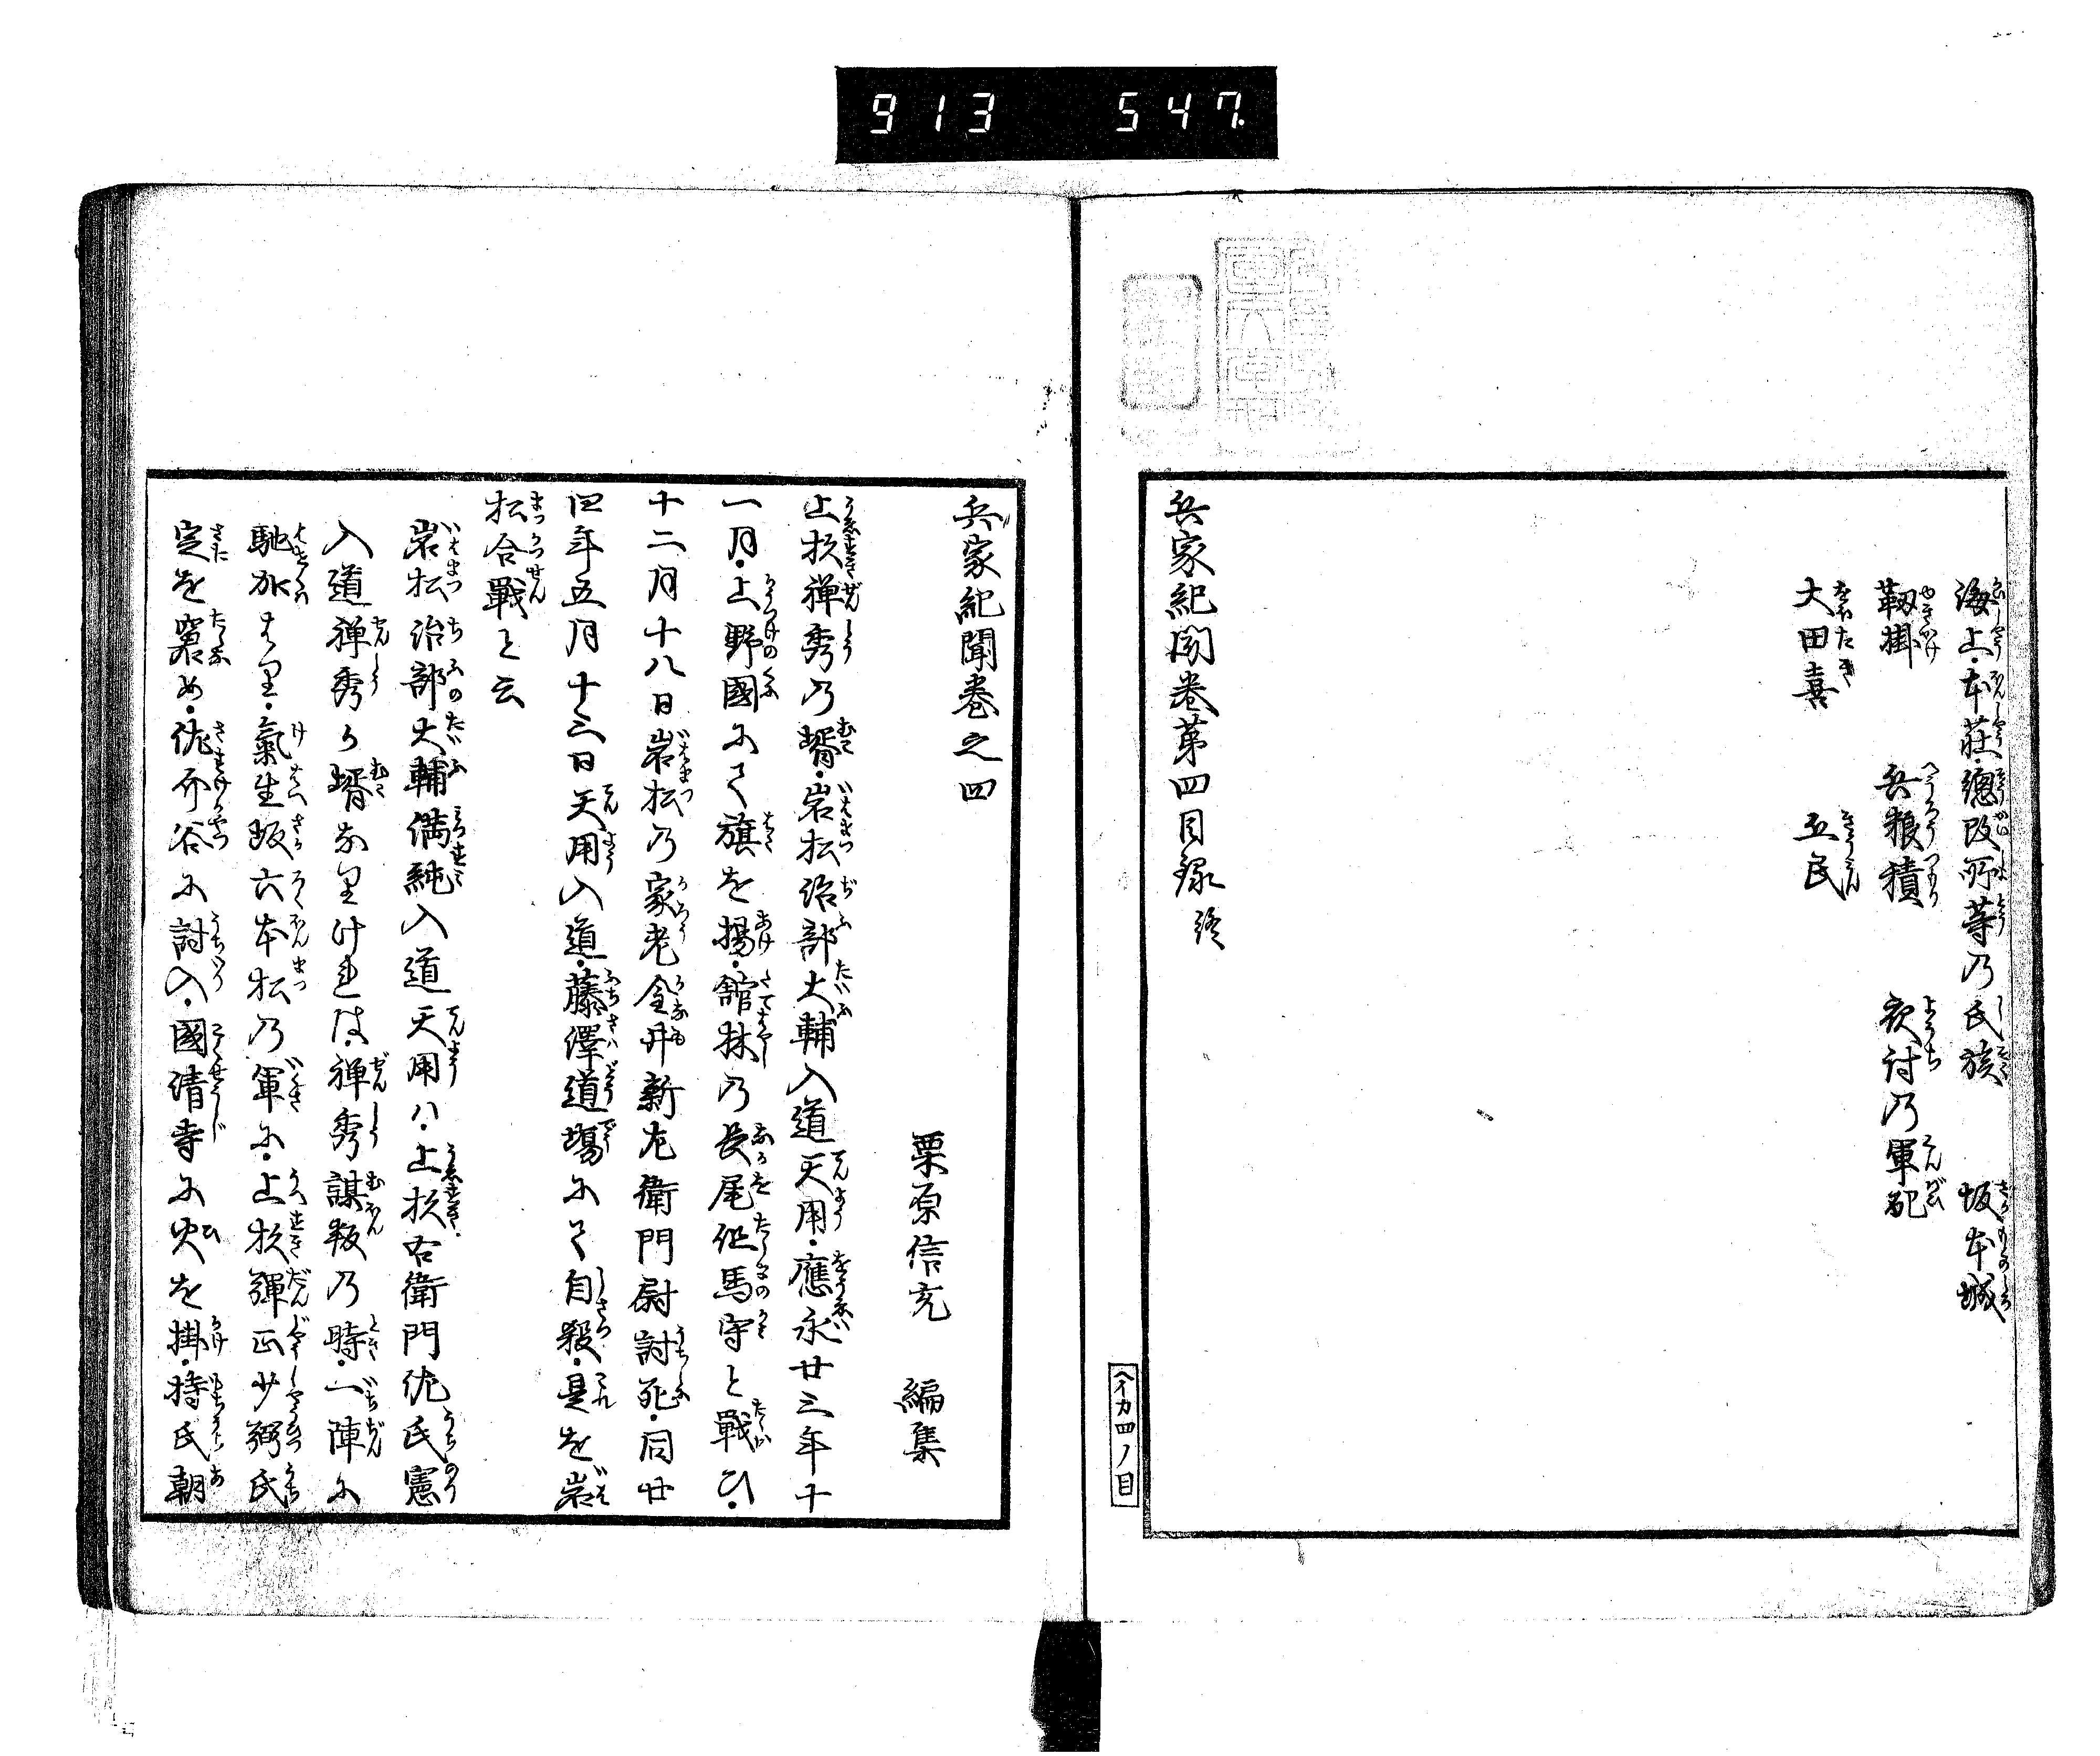 913 547.
海上・本莊・總政所等乃氏族 坂本城
靱掛 兵粮積 夜討乃軍配
大田喜 五民
兵家紀聞巻第四目録 終
ヘイカ四ノ目
兵家紀聞巻之四
栗原信充 編集
上杉禅秀乃壻・岩松治部大輔入道天用・應永廿三年十
一月・上野國にて旗を揚・舘林乃長尾但馬守と戰ひ・
十二月十八日岩松乃家老金井新左衛門尉討死・同廿
四年五月十三日天用入道・藤澤道場にて自殺・是を岩
松合戰と云
岩松治部大輔満純入道天用ハ・上杉右衛門佐氏憲
入道禅秀か壻なりけれは・禅秀謀叛乃時・一陣に
馳加はり・氣生坂六本松乃軍に・上杉彈正少弼氏
定を窘め・佐介谷に討入・國清寺に火を掛・持氏朝